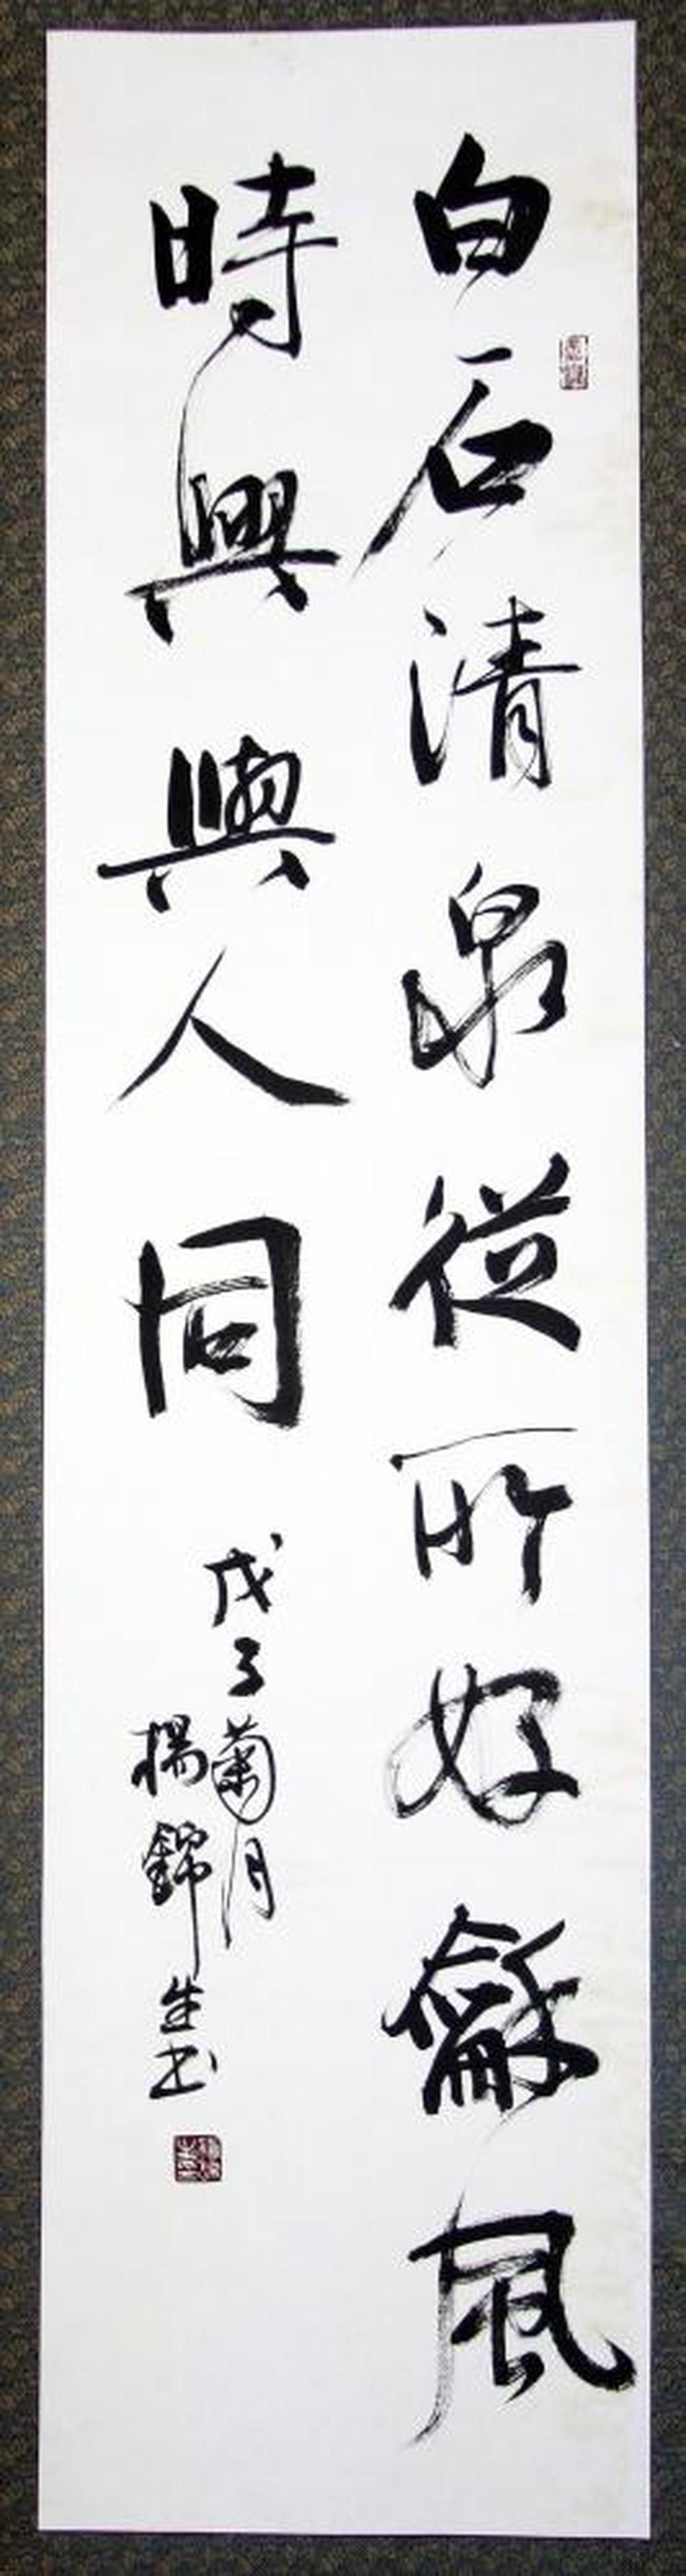 白石清泉從所好龢風
時興與人同
戊子菊月
楊錦生書